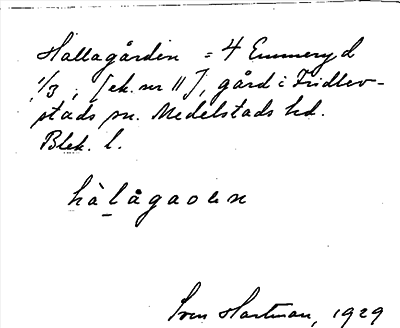 Hallagården = 4 Emmeryd
1/3, [ek. nr 11], gård i Fridlev-
stads sn. Medelstads hd.
Blek. l.
hàlågaoen
Sven Hartman, 1929